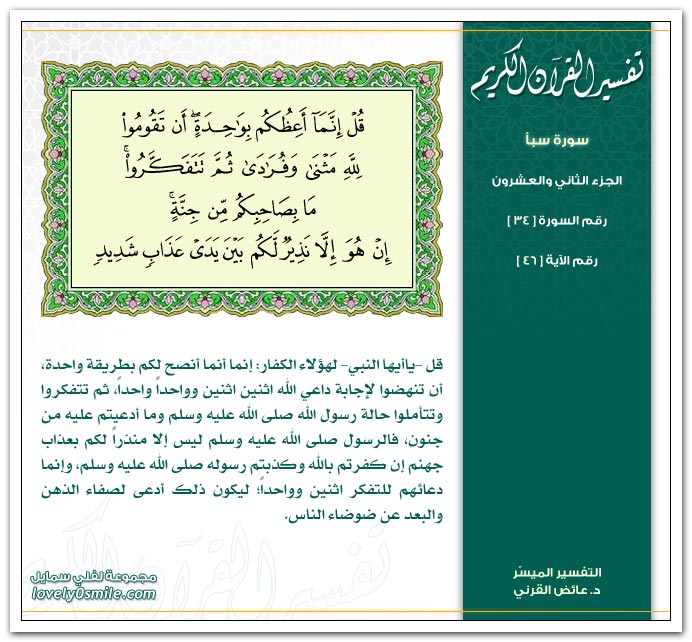 تفسير القرآن الكريم
سورة سبأ
الجزء الثاني والعشرون
رقم السورة [ ٣٤ ]
رقم الآية [ ٤٦ ]
قُلْ إِنَّمَآ أَعِظُكُم بِوَٰحِدَةٍ ۖ أَن تَقُومُوا۟
لِلَّهِ مَثْنَىٰ وَفُرَٰدَىٰ ثُمَّ تَتَفَكَّرُوا۟ ۚ
مَا بِصَاحِبِكُم مِّن جِنَّةٍ ۚ
إِنْ هُوَ إِلَّا نَذِيرٌ لَّكُم بَيْنَ يَدَىْ عَذَابٍ شَدِيدٍ
قل -ياأيها النبي- لهؤلاء الكفار: إنما أنما أنصح لكم بطريقة واحدة،
أن تنهضوا لإجابة داعي الله اثنين اثنين وواحداً واحداً، ثم تتفكروا
وتتأملوا حالة رسول الله صلى الله عليه وسلم وما أدعيتم عليه من
جنون، فالرسول صلى الله عليه وسلم ليس إلا منذراً لكم بعذاب
جهنم إن كفرتم بالله وكذبتم رسوله صلى الله عليه وسلم، وإنما
دعائهم للتفكر اثنين وواحداً؛ ليكون ذلك أدعى لصفاء الذهن
والبعد عن ضوضاء الناس.
التفسير الميسّر
د. عائض القرني
مجموعة لفلي سمايل
lovely0smile.com
تفسير القرآن الكريم